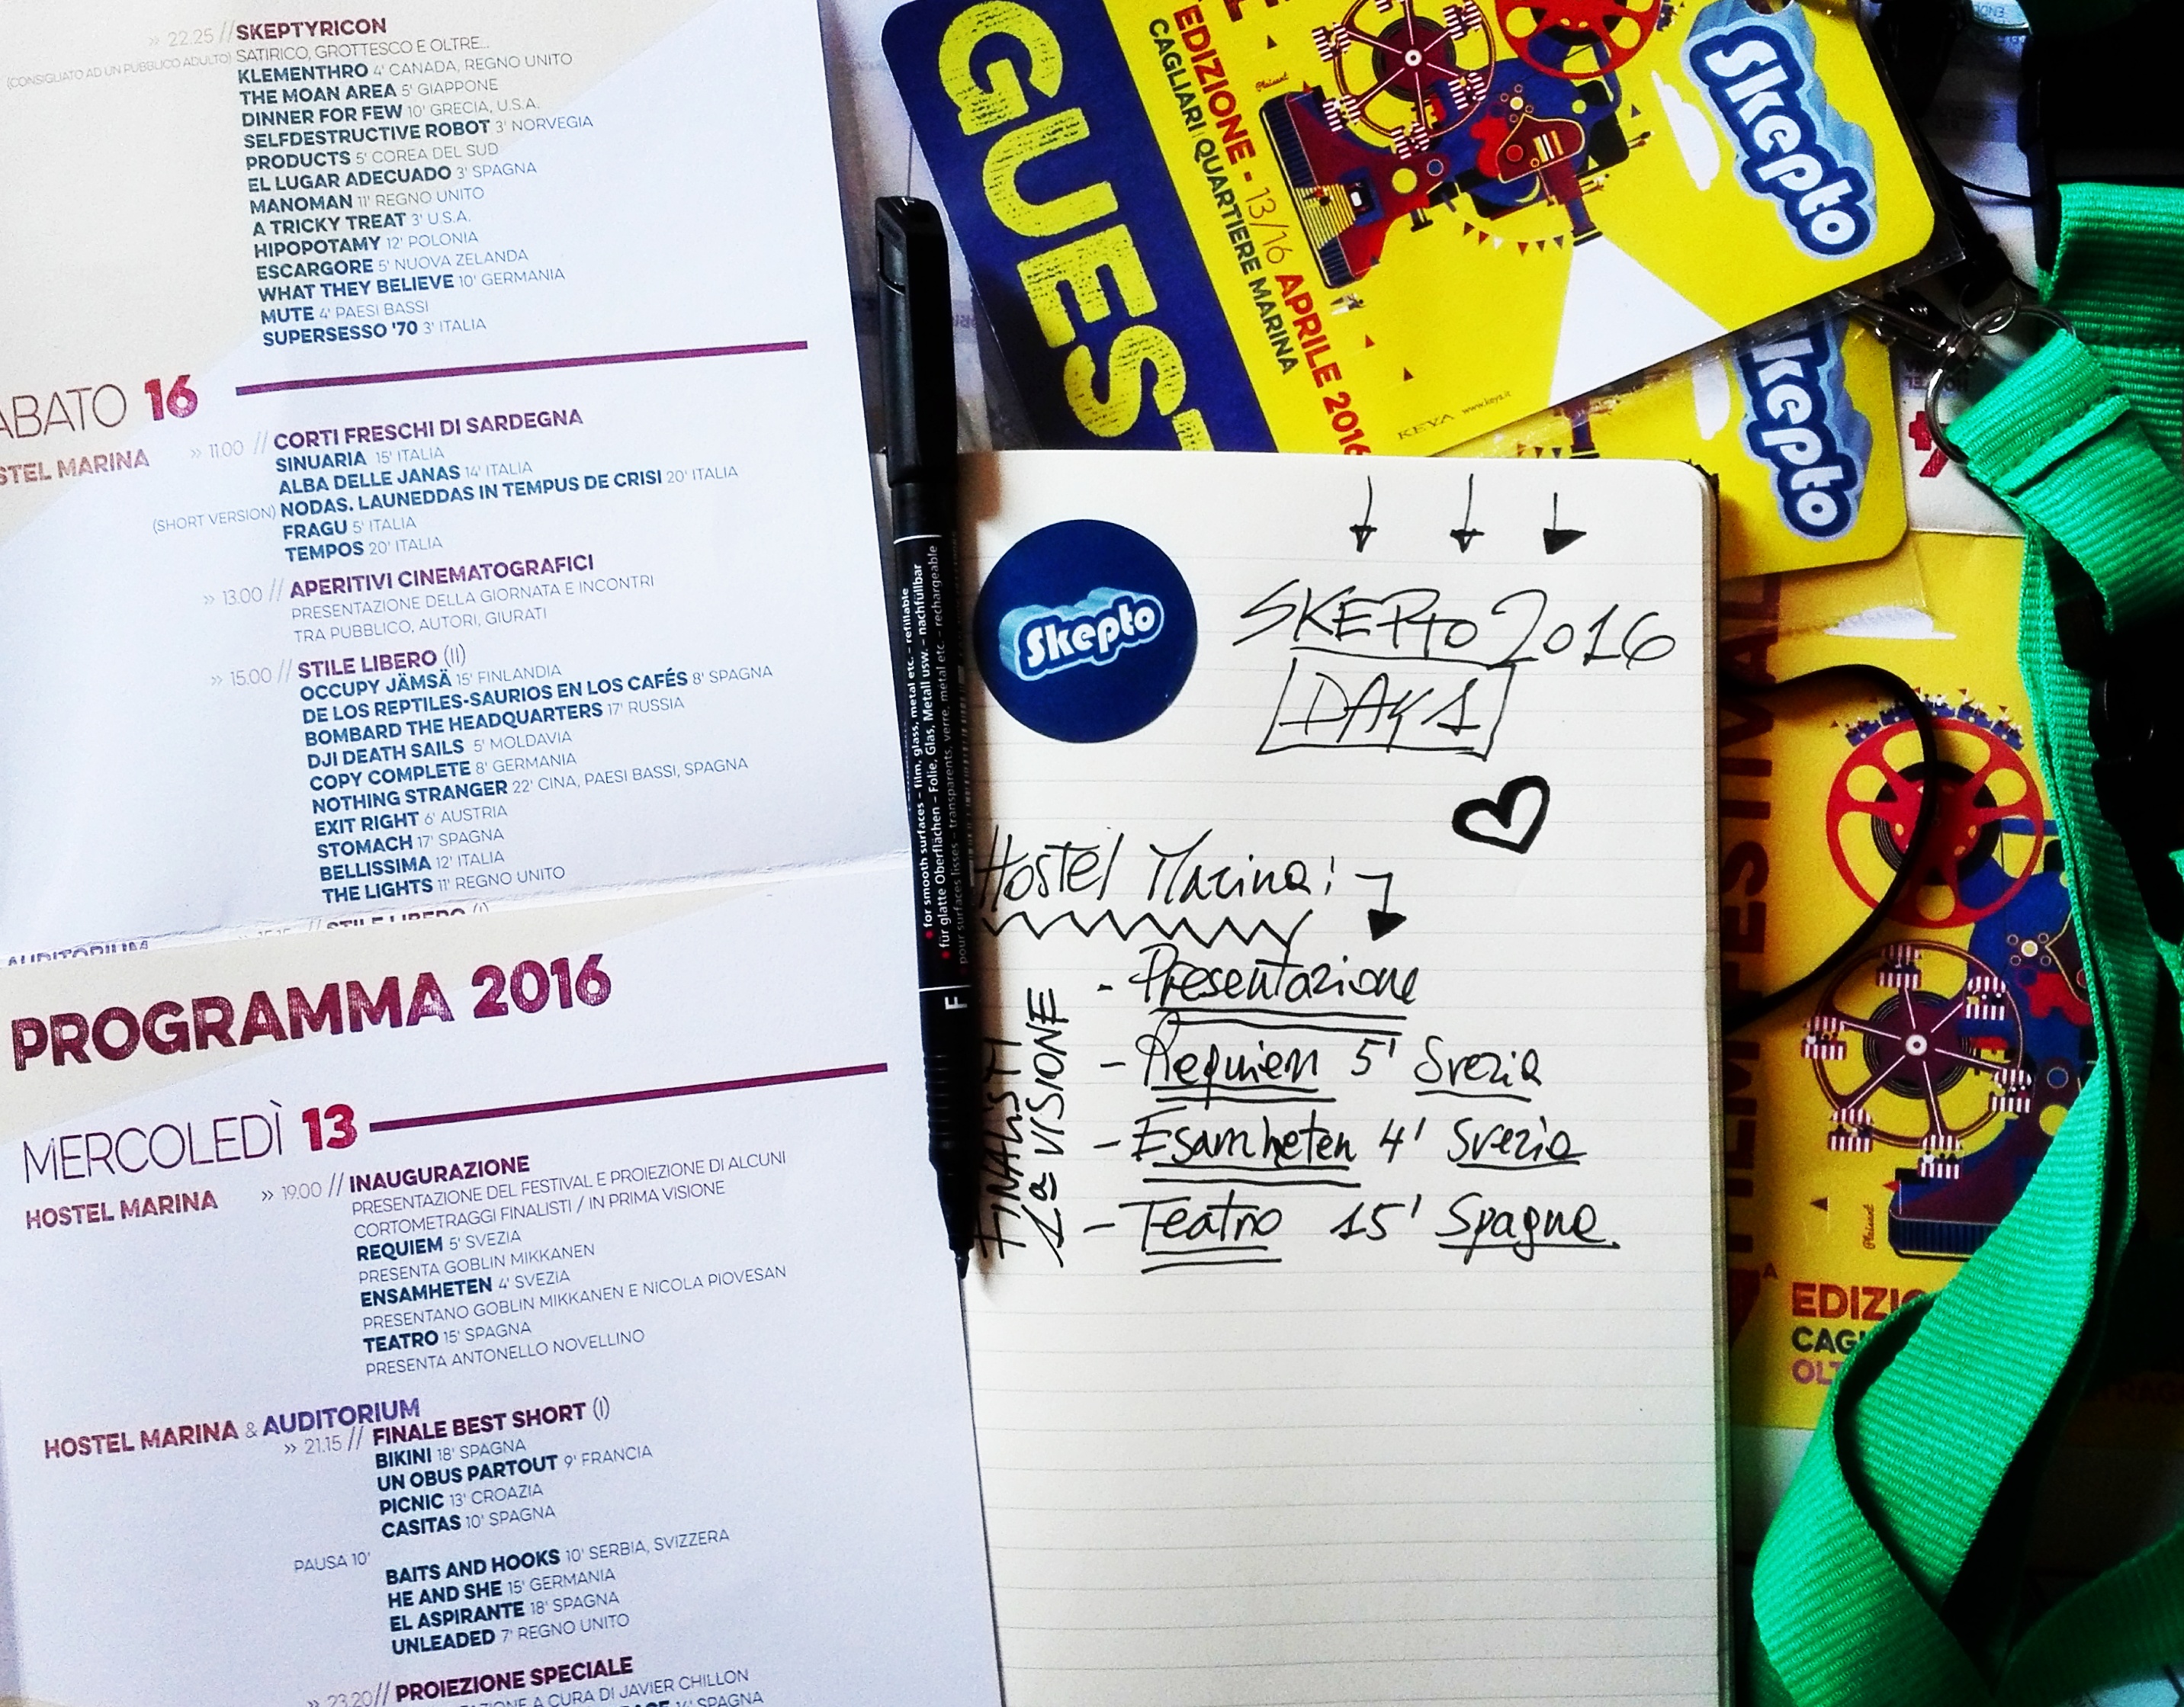 » 22.25 // SKEPTYRICON
(CONSIGLIATO AD UN PUBBLICO ADULTO) SATIRICO, GROTTESCO E OLTRE...
KLEMENTHRO 4' CANADA, REGNO UNITO
THE MOAN AREA 5' GIAPPONE
DINNER FOR FEW 10' GRECIA, U.S.A.
SELFDESTRUCTIVE ROBOT 3' NORVEGIA
PRODUCTS 5' COREA DEL SUD
EL LUGAR ADECUADO 3' SPAGNA
MANOMAN 11' REGNO UNITO
A TRICKY TREAT 3' U.S.A.
HIPOPOTAMY 12' POLONIA
ESCARGORE 5' NUOVA ZELANDA
WHAT THEY BELIEVE 10' GERMANIA
MUTE 4' PAESI BASSI
SUPERSESSO '70 3' ITALIA
ABATO 16
STEL MARINA » 11.00 // CORTI FRESCHI DI SARDEGNA
SINUARIA 15' ITALIA
ALBA DELLE JANAS 14' ITALIA
(SHORT VERSION) NODAS. LAUNEDDAS IN TEMPUS DE CRISI 20' ITALIA
FRAGU 5' ITALIA
TEMPOS 20' ITALIA
» 13.00 // APERITIVI CINEMATOGRAFICI
PRESENTAZIONE DELLA GIORNATA E INCONTRI
TRA PUBBLICO, AUTORI, GIURATI
» 15.00 // STILE LIBERO (II)
OCCUPY JÄMSÄ 15' FINLANDIA
DE LOS REPTILES-SAURIOS EN LOS CAFÉS 8' SPAGNA
BOMBARD THE HEADQUARTERS 17' RUSSIA
DJI DEATH SAILS 5' MOLDAVIA
COPY COMPLETE 8' GERMANIA
NOTHING STRANGER 22' CINA, PAESI BASSI, SPAGNA
EXIT RIGHT 6' AUSTRIA
STOMACH 17' SPAGNA
BELLISSIMA 12' ITALIA
THE LIGHTS 11' REGNO UNITO
AUDITORIUM » 15.15 // STILE LIBERO (I)
PROGRAMMA 2016
MERCOLEDÌ 13
HOSTEL MARINA » 19.00 // INAUGURAZIONE
PRESENTAZIONE DEL FESTIVAL E PROIEZIONE DI ALCUNI
CORTOMETRAGGI FINALISTI / IN PRIMA VISIONE
REQUIEM 5' SVEZIA
PRESENTA GOBLIN MIKKANEN
ENSAMHETEN 4' SVEZIA
PRESENTANO GOBLIN MIKKANEN E NICOLA PIOVESAN
TEATRO 15' SPAGNA
PRESENTA ANTONELLO NOVELLINO
HOSTEL MARINA & AUDITORIUM
» 21.15 // FINALE BEST SHORT (I)
BIKINI 18' SPAGNA
UN OBUS PARTOUT 9' FRANCIA
PICNIC 13' CROAZIA
CASITAS 10' SPAGNA
PAUSA 10'
BAITS AND HOOKS 10' SERBIA, SVIZZERA
HE AND SHE 15' GERMANIA
EL ASPIRANTE 18' SPAGNA
UNLEADED 7' REGNO UNITO
» 23.20 // PROIEZIONE SPECIALE
A CURA DI JAVIER CHILLON
14' SPAGNA
for smooth surfaces – film, glass, metal etc. – refillable
für glatte Oberflächen – Folie, Glas, Metall usw. – nachfüllbar
pour surfaces lisses – transparents, verre, metal etc. – rechargeable
F
GUEST
EDIZIONE - 13/16 APRILE 2016
CAGLIARI QUARTIERE MARINA
KEYA www.keya.it
Skepto
Skepto
Skepto
SKEPTO 2016
DAY 1
Hostel Marina:
- Presentazione
- Requiem 5' Svezia
- Esamheten 4' Svezia
- Teatro 15' Spagna
FINALISTI
1a VISIONE
FILM FESTIVAL
EDIZIO
CAG
OLT